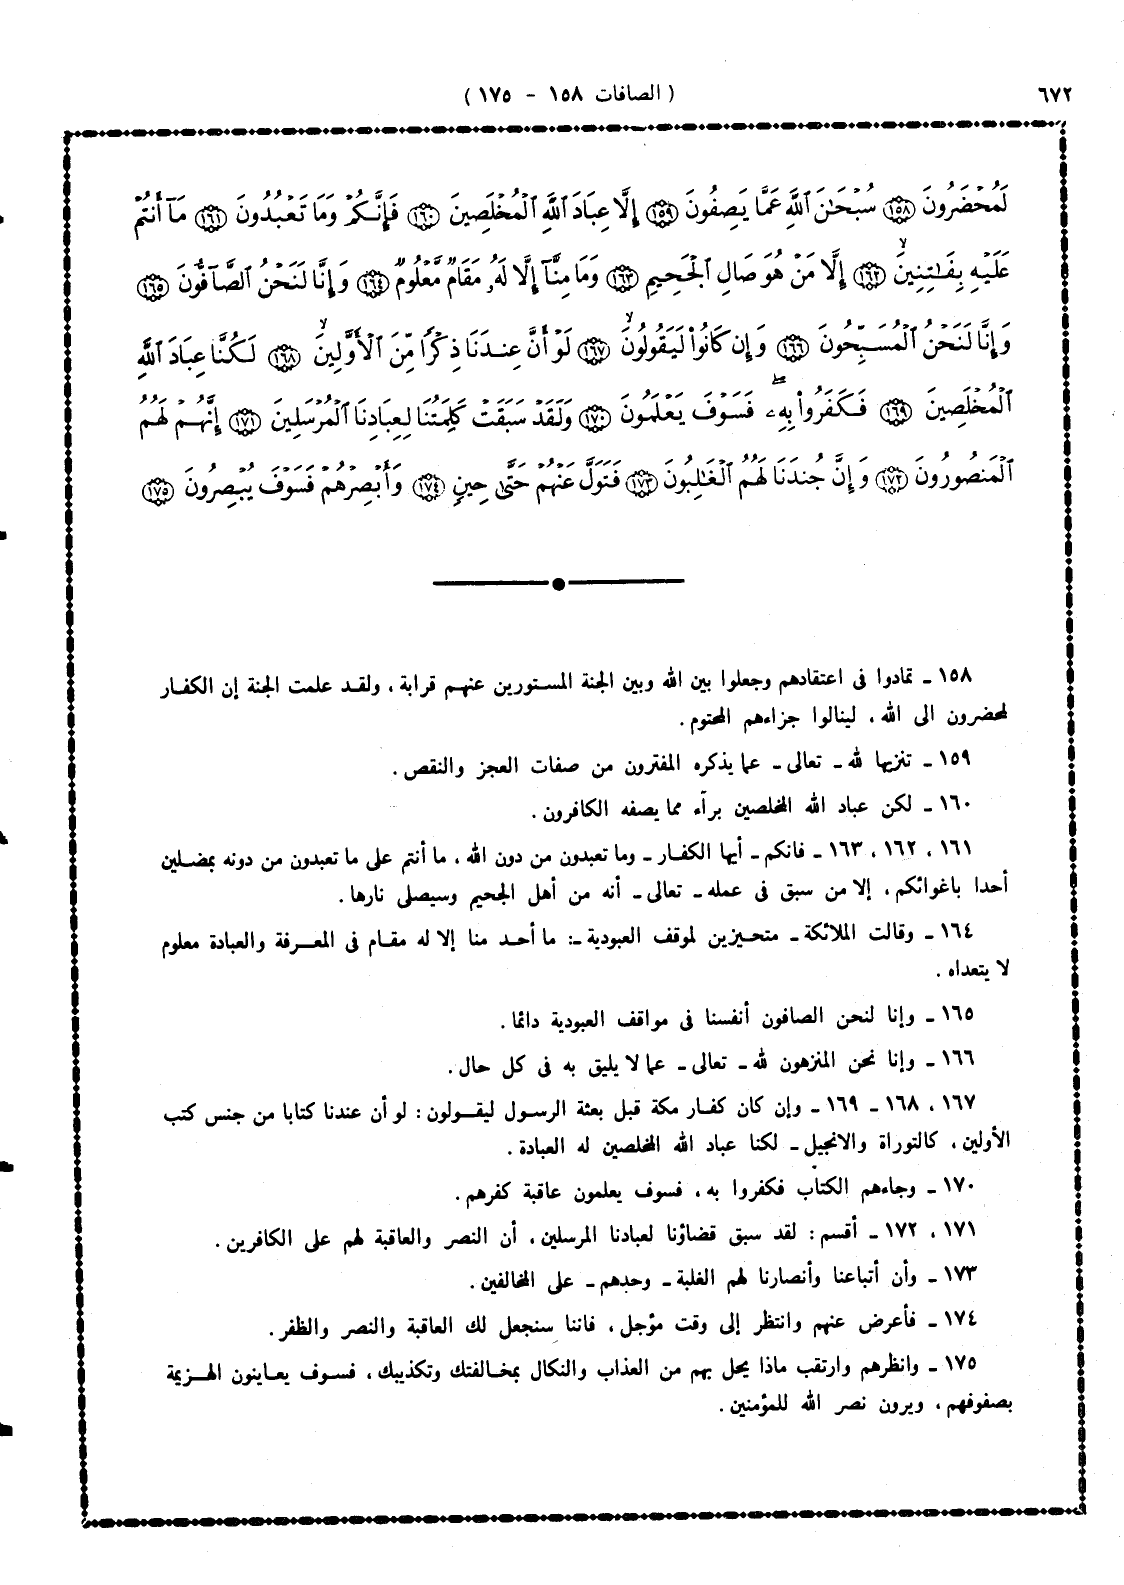 ٦٧٢
( الصافات ١٥٨ – ١٧٥ )
لَمُحْضَرُونَ ﴿١٥٨﴾ سُبْحَٰنَ ٱللَّهِ عَمَّا يَصِفُونَ ﴿١٥٩﴾ إِلَّا عِبَادَ ٱللَّهِ ٱلْمُخْلَصِينَ ﴿١٦٠﴾ فَإِنَّكُمْ وَمَا تَعْبُدُونَ ﴿١٦١﴾ مَآ أَنتُمْ
عَلَيْهِ بِفَٰتِنِينَ ﴿١٦٢﴾ إِلَّا مَنْ هُوَ صَالِ ٱلْجَحِيمِ ﴿١٦٣﴾ وَمَا مِنَّآ إِلَّا لَهُۥ مَقَامٌ مَّعْلُومٌ ﴿١٦٤﴾ وَإِنَّا لَنَحْنُ ٱلصَّآفُّونَ ﴿١٦٥﴾
وَإِنَّا لَنَحْنُ ٱلْمُسَبِّحُونَ ﴿١٦٦﴾ وَإِن كَانُوا۟ لَيَقُولُونَ ﴿١٦٧﴾ لَوْ أَنَّ عِندَنَا ذِكْرًا مِّنَ ٱلْأَوَّلِينَ ﴿١٦٨﴾ لَكُنَّا عِبَادَ ٱللَّهِ
ٱلْمُخْلَصِينَ ﴿١٦٩﴾ فَكَفَرُوا۟ بِهِۦ فَسَوْفَ يَعْلَمُونَ ﴿١٧٠﴾ وَلَقَدْ سَبَقَتْ كَلِمَتُنَا لِعِبَادِنَا ٱلْمُرْسَلِينَ ﴿١٧١﴾ إِنَّهُمْ لَهُمُ
ٱلْمَنصُورُونَ ﴿١٧٢﴾ وَإِنَّ جُندَنَا لَهُمُ ٱلْغَٰلِبُونَ ﴿١٧٣﴾ فَتَوَلَّ عَنْهُمْ حَتَّىٰ حِينٍ ﴿١٧٤﴾ وَأَبْصِرْهُمْ فَسَوْفَ يُبْصِرُونَ ﴿١٧٥﴾
١٥٨ ـ تمادوا فى اعتقادهم وجعلوا بين الله وبين الجنة المستورين عنهم قرابة ، ولقد علمت الجنة إن الكفار
لمحضرون الى الله ، لينالوا جزاءهم المحتوم .
١٥٩ ـ تنزيها لله ـ تعالى ـ عما يذكره المفترون من صفات العجز والنقص .
١٦٠ ـ لكن عباد الله المخلصين برآء مما يصفه الكافرون .
١٦١ ، ١٦٢ ، ١٦٣ ـ فانكم ـ أيها الكفار ـ وما تعبدون من دون الله ، ما أنتم على ما تعبدون من دونه بمضلين
أحدا باغوائكم ، إلا من سبق فى عمله ـ تعالى ـ أنه من أهل الجحيم وسيصلى نارها .
١٦٤ ـ وقالت الملائكة ـ متحيزين لموقف العبودية ـ : ما أحد منا إلا له مقام فى المعرفة والعبادة معلوم
لا يتعداه .
١٦٥ ـ وإنا لنحن الصافون أنفسنا فى مواقف العبودية دائما .
١٦٦ ـ وإنا نحن المنزهون لله ـ تعالى ـ عما لا يليق به فى كل حال .
١٦٧ ، ١٦٨ ـ ١٦٩ ـ وإن كان كفار مكة قبل بعثة الرسول ليقولون : لو أن عندنا كتابا من جنس كتب
الأولين ، كالتوراة والانجيل ـ لكنا عباد الله المخلصين له العبادة .
١٧٠ ـ وجاءهم الكتاب فكفروا به ، فسوف يعلمون عاقبة كفرهم .
١٧١ ، ١٧٢ ـ أقسم : لقد سبق قضاؤنا لعبادنا المرسلين ، أن النصر والعاقبة لهم على الكافرين .
١٧٣ ـ وأن أتباعنا وأنصارنا لهم الغلبة ـ وحدهم ـ على المخالفين .
١٧٤ ـ فأعرض عنهم وانتظر إلى وقت مؤجل ، فاننا سنجعل لك العاقبة والنصر والظفر .
١٧٥ ـ وانظرهم وارتقب ماذا يحل بهم من العذاب والنكال بمخالفتك وتكذيبك ، فسوف يعاينون الهزيمة
بصفوفهم ، ويرون نصر الله للمؤمنين .